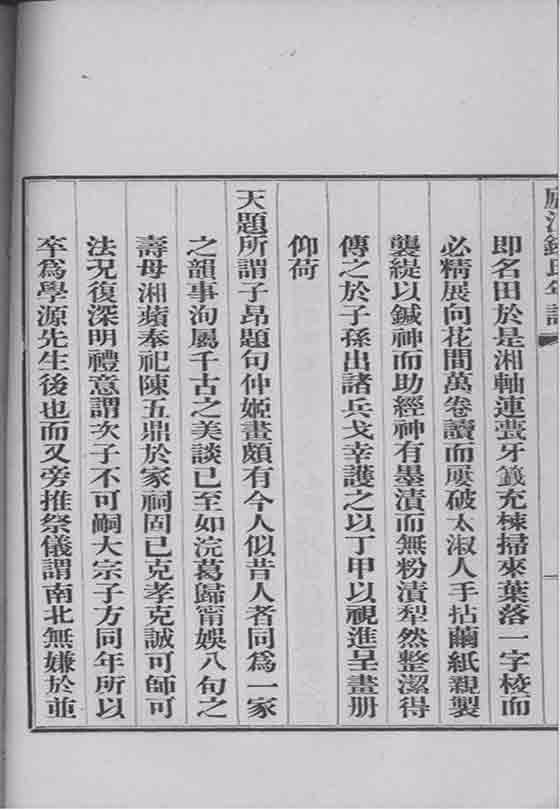 即名田於是湘軸連甍牙籤充棟掃來葉落一字校而
必精展向花間萬卷讀而屢破太淑人手拈繭紙親製
襲緹以鍼神而助經神有墨漬而無粉漬犁然整潔得
傳之於子孫出諸兵戈幸護之以丁甲以視進呈畫册
仰荷
天題所謂子昂題句仲姬畫頗有今人似昔人者同爲一家
之韻事洵屬千古之美談已至如浣葛歸甯娛八旬之
壽母湘蘋奉祀陳五鼎於家祠固已克孝克誠可師可
法况復深明禮意謂次子不可嗣大宗子方同年所以
卒爲學源先生後也而又旁推祭儀謂南北無嫌於並